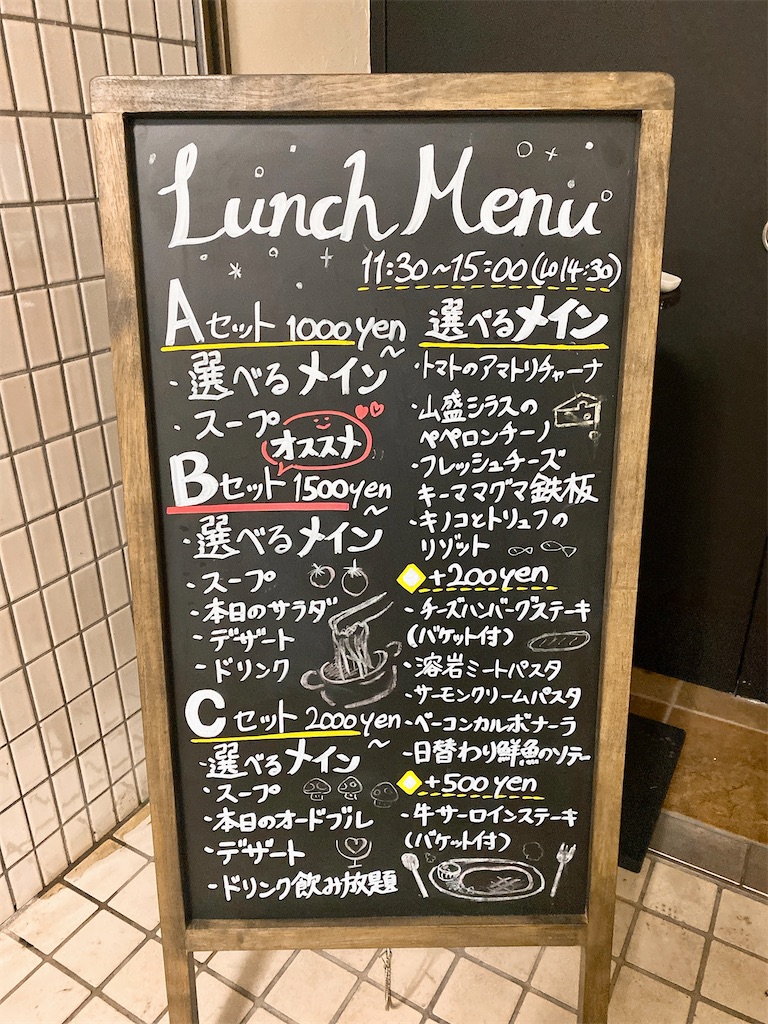 Lunch Menu
11:30~15:00(LO14:30)
Aセット 1000yen~
・選べるメイン
・スープ
オススメ
Bセット 1500yen~
・選べるメイン
・スープ
・本日のサラダ
・デザート
・ドリンク
Cセット 2000yen~
・選べるメイン
・スープ
・本日のオードブル
・デザート
・ドリンク飲み放題
選べるメイン
・トマトのアマトリチャーナ
・山盛シラスの
ペペロンチーノ
・フレッシュチーズ
キーママグマ鉄板
・キノコとトリュフの
リゾット
+200yen
・チーズハンバーグステーキ
(バケット付)
・溶岩ミートパスタ
・サーモンクリームパスタ
・ベーコンカルボナーラ
・日替わり鮮魚のソテー
+500yen
・牛サーロインステーキ
(バケット付)